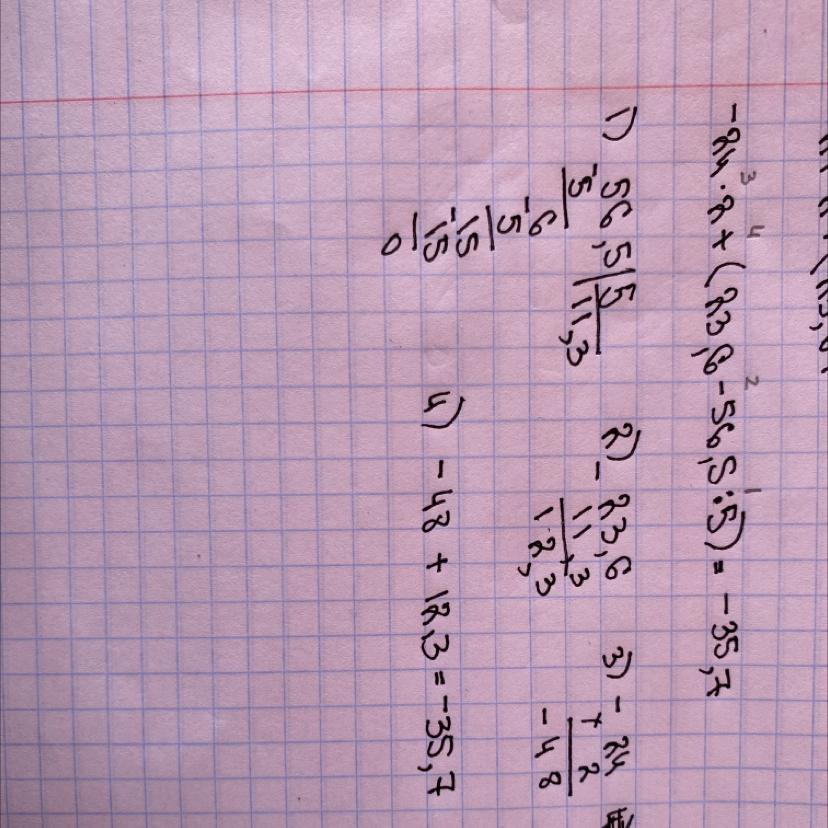 3 4 2 1
-24 · 2 + (23,6 - 56,5 : 5) = -35,7
1) 56,5 | 5
-5 11,3
6
-5
15
-15
0
2) - 23,6
11,3
12,3
3) - 24
× 2
-48
4) -48 + 12,3 = -35,7